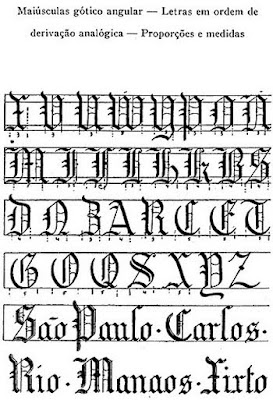 Maiúsculas gótico angular — Letras em ordem de
derivação analógica — Proporções e medidas
X V U W Y P O N
D N Z A R C E T
G O Q S X Y Z
São Paulo · Carlos ·
Rio · Manaos · Xisto